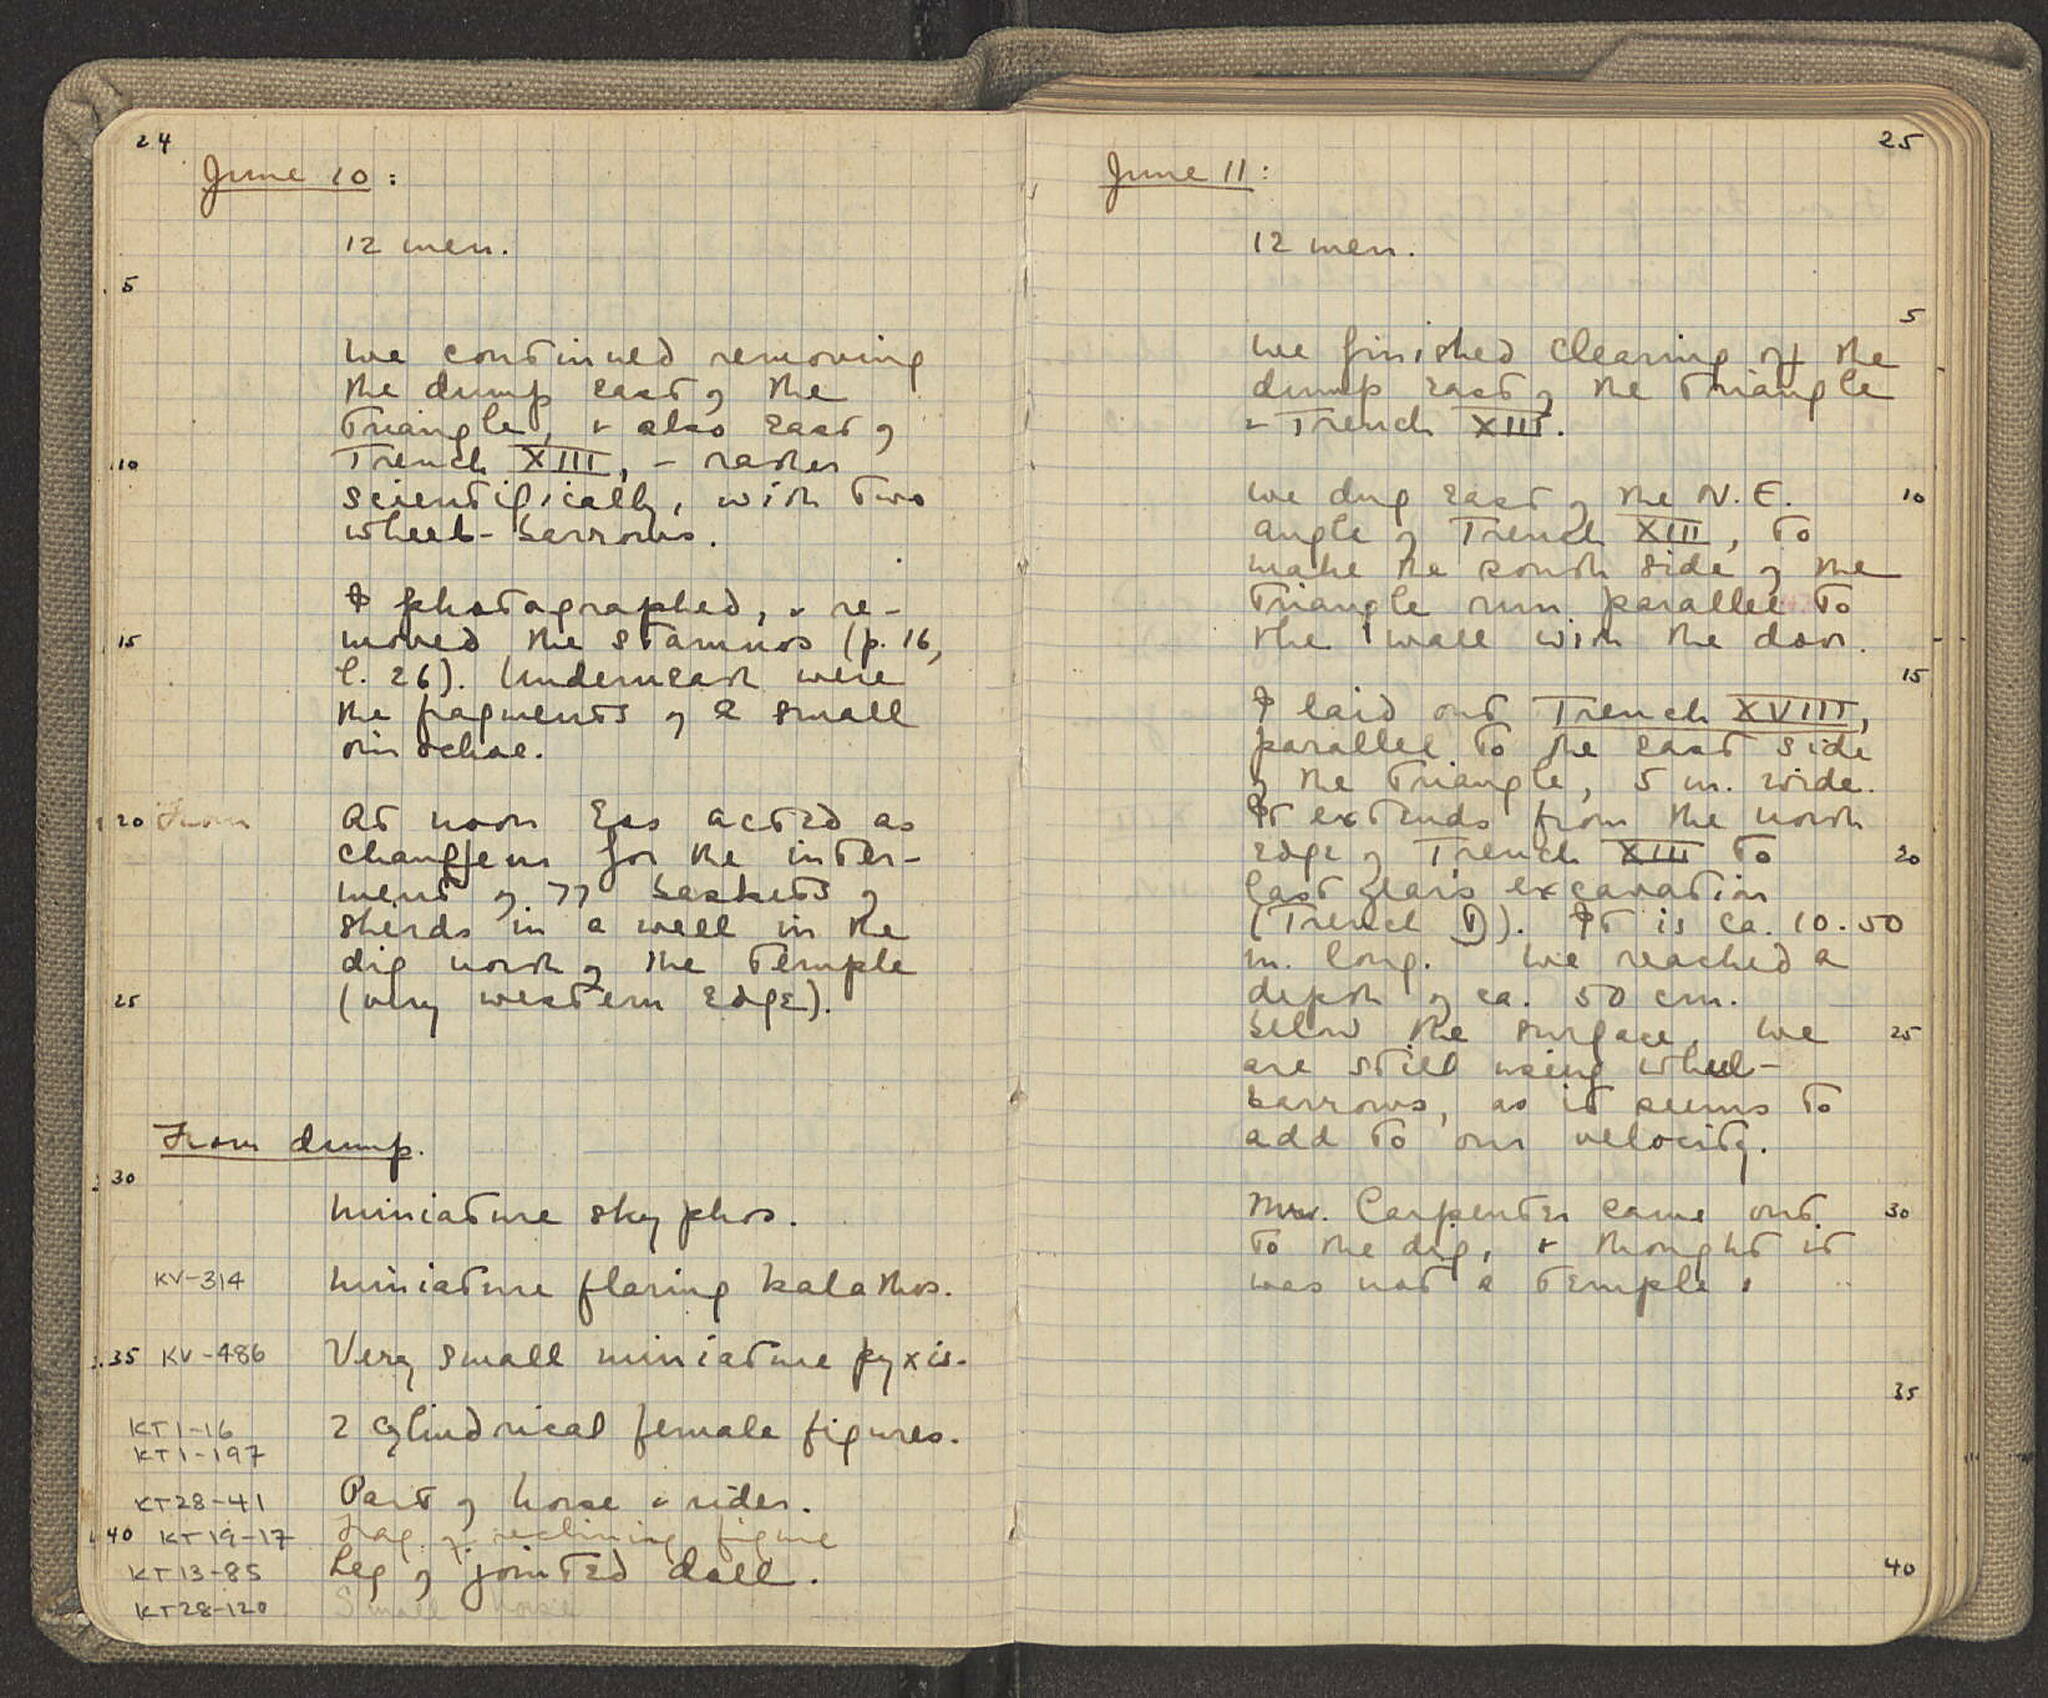 24
June 10:
12 men.
5
We continued removing
the dump east of the
Triangle, & also east of
10 Trench XIII, - rather
scientifically, with two
wheel-barrows.
I photographed, & re-
15 moved the stamnos (p. 16,
l. 26). Underneath were
the fragments of a small
oinochoe.
20 From At noon Ess acted as
chauffeur for the inter-
ment of 77 baskets of
sherds in a well in the
dig north of the Temple
25 (very western edge).
From dump.
30
Miniature skyphos.
KV-314 Miniature flaring kalathos.
35 KV-486 Very small miniature pyxis.
KT1-16 2 cylindrical female figures.
KT1-197
KT28-41 Part of horse & rider.
40 KT19-17 Frag. of reclining figure
KT13-85 Leg of jointed doll.
KT28-120 Small horse
25
June 11:
12 men.
5
We finished clearing off the
dump east of the Triangle
& Trench XIII.
We dug east of the N.E. 10
angle of Trench XIII, to
make the south side of the
Triangle run parallel to
the wall with the door.
15
I laid out Trench XVIII,
parallel to the east side
of the Triangle, 5 m. wide.
It extends from the north
edge of Trench XIII to 20
last year's excavation
(Trench D). It is ca. 10.50
m. long. We reached a
depth of ca. 50 cm.
below the surface. We 25
are still using wheel-
barrows, as it seems to
add to our velocity.
Mrs. Carpenter came out 30
to the dig, & thought it
was not a temple.
35
40